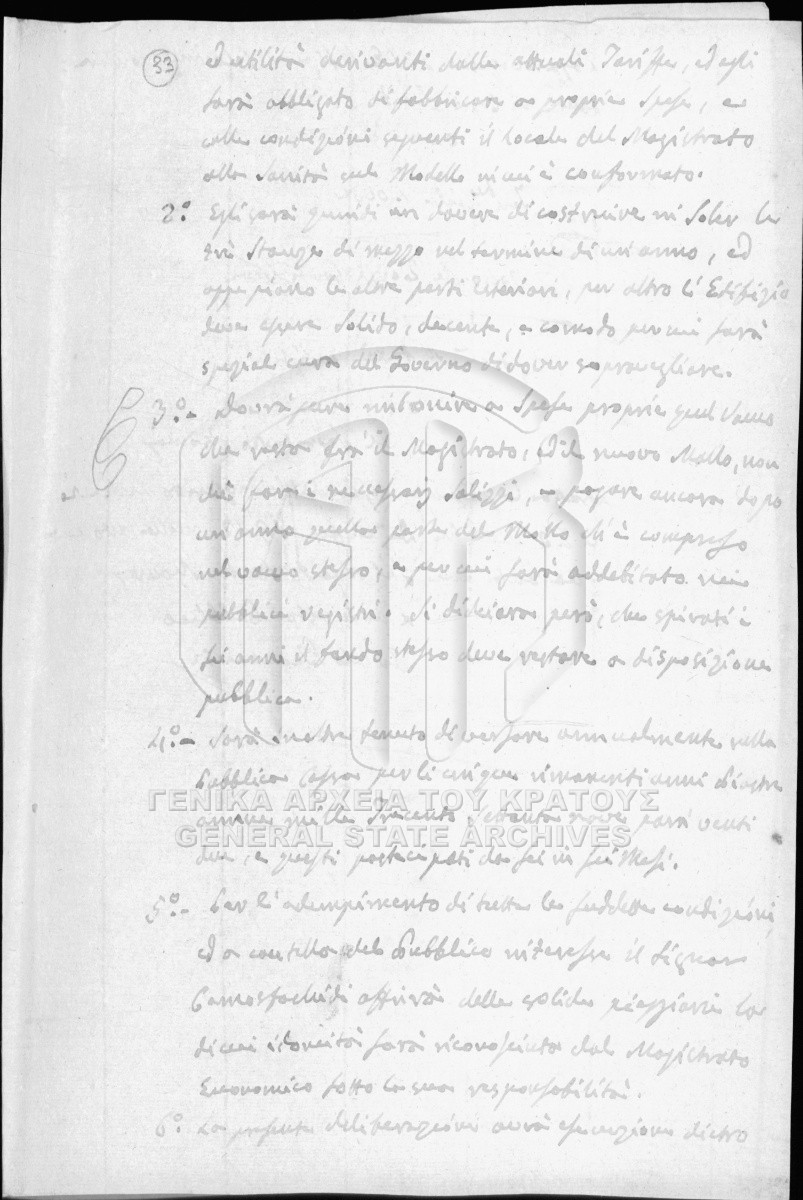 33
ed utilità derivanti dalle attuali Tariffe, ed egli
sarà obbligato di fabbricare a proprie Spese, e
colle condizioni seguenti il locale del Magistrato
alla Sanità sul Modello
2.º Egli sarà quindi in dovere di costruire in Soler le
trè Stanze di mezzo nel termine di un anno, ed
a pepiano le altre parti Esteriori, per altro l'Edifizio
deve essere Solido, decente, e comodo per cui sarà
speziale cura del Governo di dover sopravegliare.
3.º- Dovrà pure a Spese proprie quel Vacuo
che resta frà il Magistrato, ed il nuovo Mollo, non
che fare i necessarj Salizzi, e pagare ancora dopo
un anno quella parte del Mollo ch'è compresa
nel vacuo stesso, e per cui sarà addebitato nei
pubblici registri. Si dichiara però, che spirati i
sei anni il fondo stesso deve restare a disposizione
pubblica.
4.º- Sarà inoltre tenuto di versare annualmente nella
Pubblica Cassa per li cinque rimanenti anni Piastre
mille Trecento Settanta nove parà venti
due, e questi posticipati da sei in sei Mesi.
5.º- Per l'adempimento di tutte le suddette condizioni,
ed a cautella del Pubblico interesse il Signor
offrirà delle solide pieggiarie la
di cui idoneità sarà riconosciuta dal Magistrato
Economico sotto la sua responsabilità.
6.º La presente deliberazione avrà esecuzione dietro
ΓΕΝΙΚΑ ΑΡΧΕΙΑ ΤΟΥ ΚΡΑΤΟΥΣ
GENERAL STATE ARCHIVES